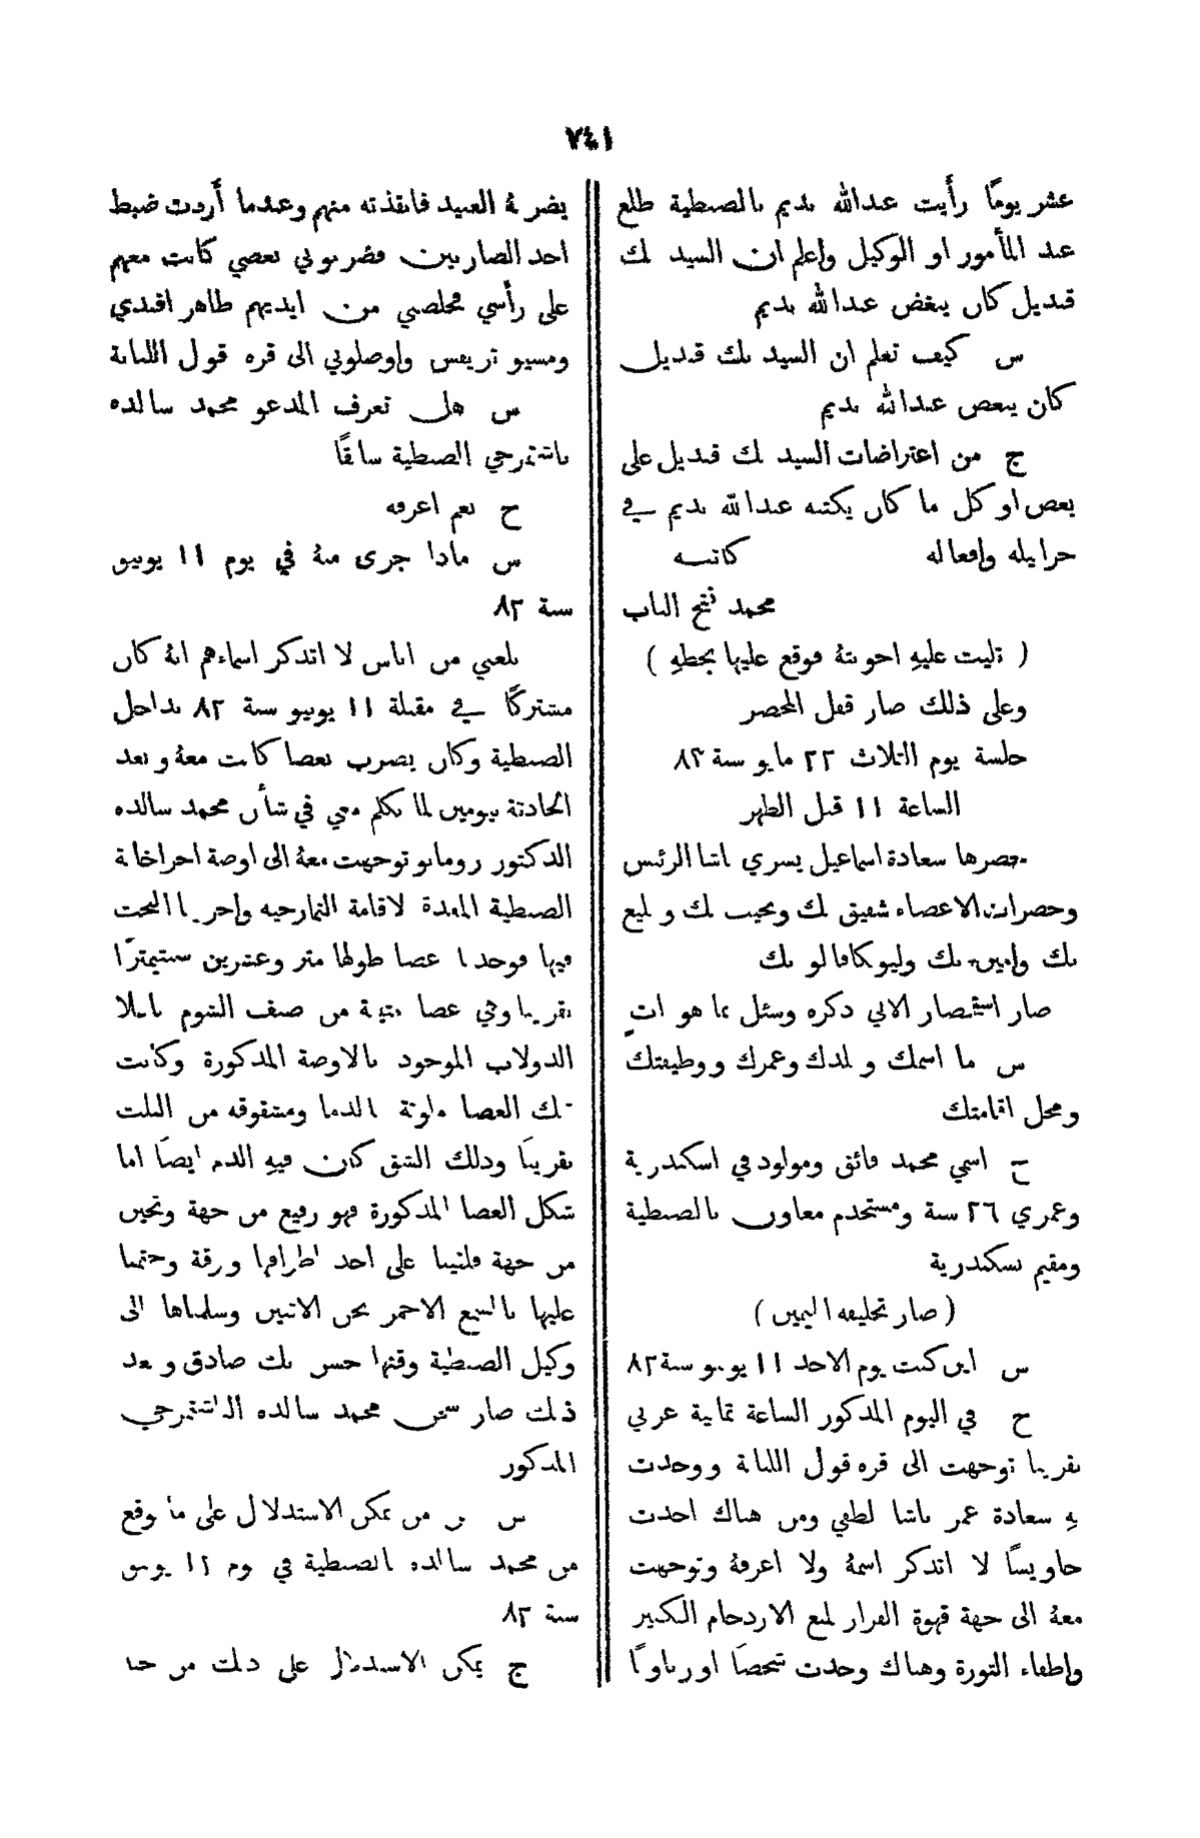 ٧٤١
عشر يومًا رأيت عبدالله نديم بالضبطية طلع
عند المأمور او الوكيل واعلم ان السيد بك
قنديل كان يبغض عبدالله نديم
س كيف تعلم ان السيد بك قنديل
كان يبغض عبدالله نديم
ج من اعتراضات السيد بك قنديل على
بعض او كل ما كان يكتبه عبدالله نديم في
جرايله وافعاله كاتبه
محمد فتح الباب
( تليت عليهِ اجوبتهُ فوقع عليها بخطهِ )
وعلى ذلك صار قفل المحضر
جلسة يوم الثلاث ٢٢ مايو سنة ٨٣
الساعة ١١ قبل الظهر
حضرها سعادة اسماعيل يسري باشا الرئيس
وحضرات الاعضاء شفيق بك ونجيب بك وبليغ
بك وامين بك وليوكافالو بك
صار استحضار الاتي ذكره وسئل بما هو اتٍ
س ما اسمك وبلدك وعمرك ووظيفتك
ومحل اقامتك
ج اسمي محمد فائق ومولود في اسكندرية
وعمري ٢٦ سنة ومستخدم معاون بالضبطية
ومقيم بسكندرية
( صار تحليفه اليمين )
س اين كنت يوم الاحد ١١ يونيو سنة ٨٢
ج في اليوم المذكور الساعة ثمانية عربي
تقريبا توجهت الى قره قول اللبانة ووجدت
بهِ سعادة عمر باشا لطفي ومن هناك اخذت
جاويشًا لا اتذكر اسمهُ ولا اعرفهُ وتوجهت
معهُ الى جهة قهوة القزاز لمنع الازدحام الكبير
واطفاء الثورة وهناك وجدت شخصًا اورباويًا
يضربهُ العبيد فانقذته منهم وعندما أردت ضبط
احد الضاربين فضربوني بعصي كانت معهم
على رأسي فخلصني من ايديهم طاهر افندي
ومسيو تريفس واوصلوني الى قره قول اللبانة
س هل تعرف المدعو محمد سالده
باشتمرجي الضبطية سابقًا
ج نعم اعرفه
س ماذا جرى منهُ في يوم ١١ يونيو
سنة ٨٢
بلغني من اناس لا اتذكر اسماءهم انهُ كان
مشتركًا في مقتلة ١١ يونيو سنة ٨٢ بداخل
الضبطية وكان يضرب بعصا كانت معهُ وبعد
الحادثة بيومين لما تكلم معي في شأن محمد سالده
الدكتور رومانو توجهت معهُ الى اوضة اجزاخانة
الضبطية المعدة لاقامة التمارجيه واجرينا البحث
فيها فوجدنا عصا طولها متر وعشرين سنتيمترًا
تقريبا وهي عصا متينة من صنف الشوم باعلا
الدولاب الموجود بالاوضة المذكورة وكانت
تلك العصا ملوثة بالدما ومشقوقه من الثلث
تقريبًا وذلك الشق كان فيهِ الدم ايضًا اما
شكل العصا المذكورة فهو رفيع من جهة وتخين
من جهة فلفينا على احد اطرافها ورقة وختمنا
عليها بالشمع الاحمر نحن الاثنين وسلمناها الى
وكيل الضبطية وقتها حسن بك صادق وبعد
ذلك صار سجن محمد سالده الباشتمرجي
المذكور
س من يمكن الاستدلال على ما وقع
من محمد سالده بالضبطية في يوم ١١ يونيو
سنة ٨٢
ج يمكن الاستدلال على ذلك من حنا